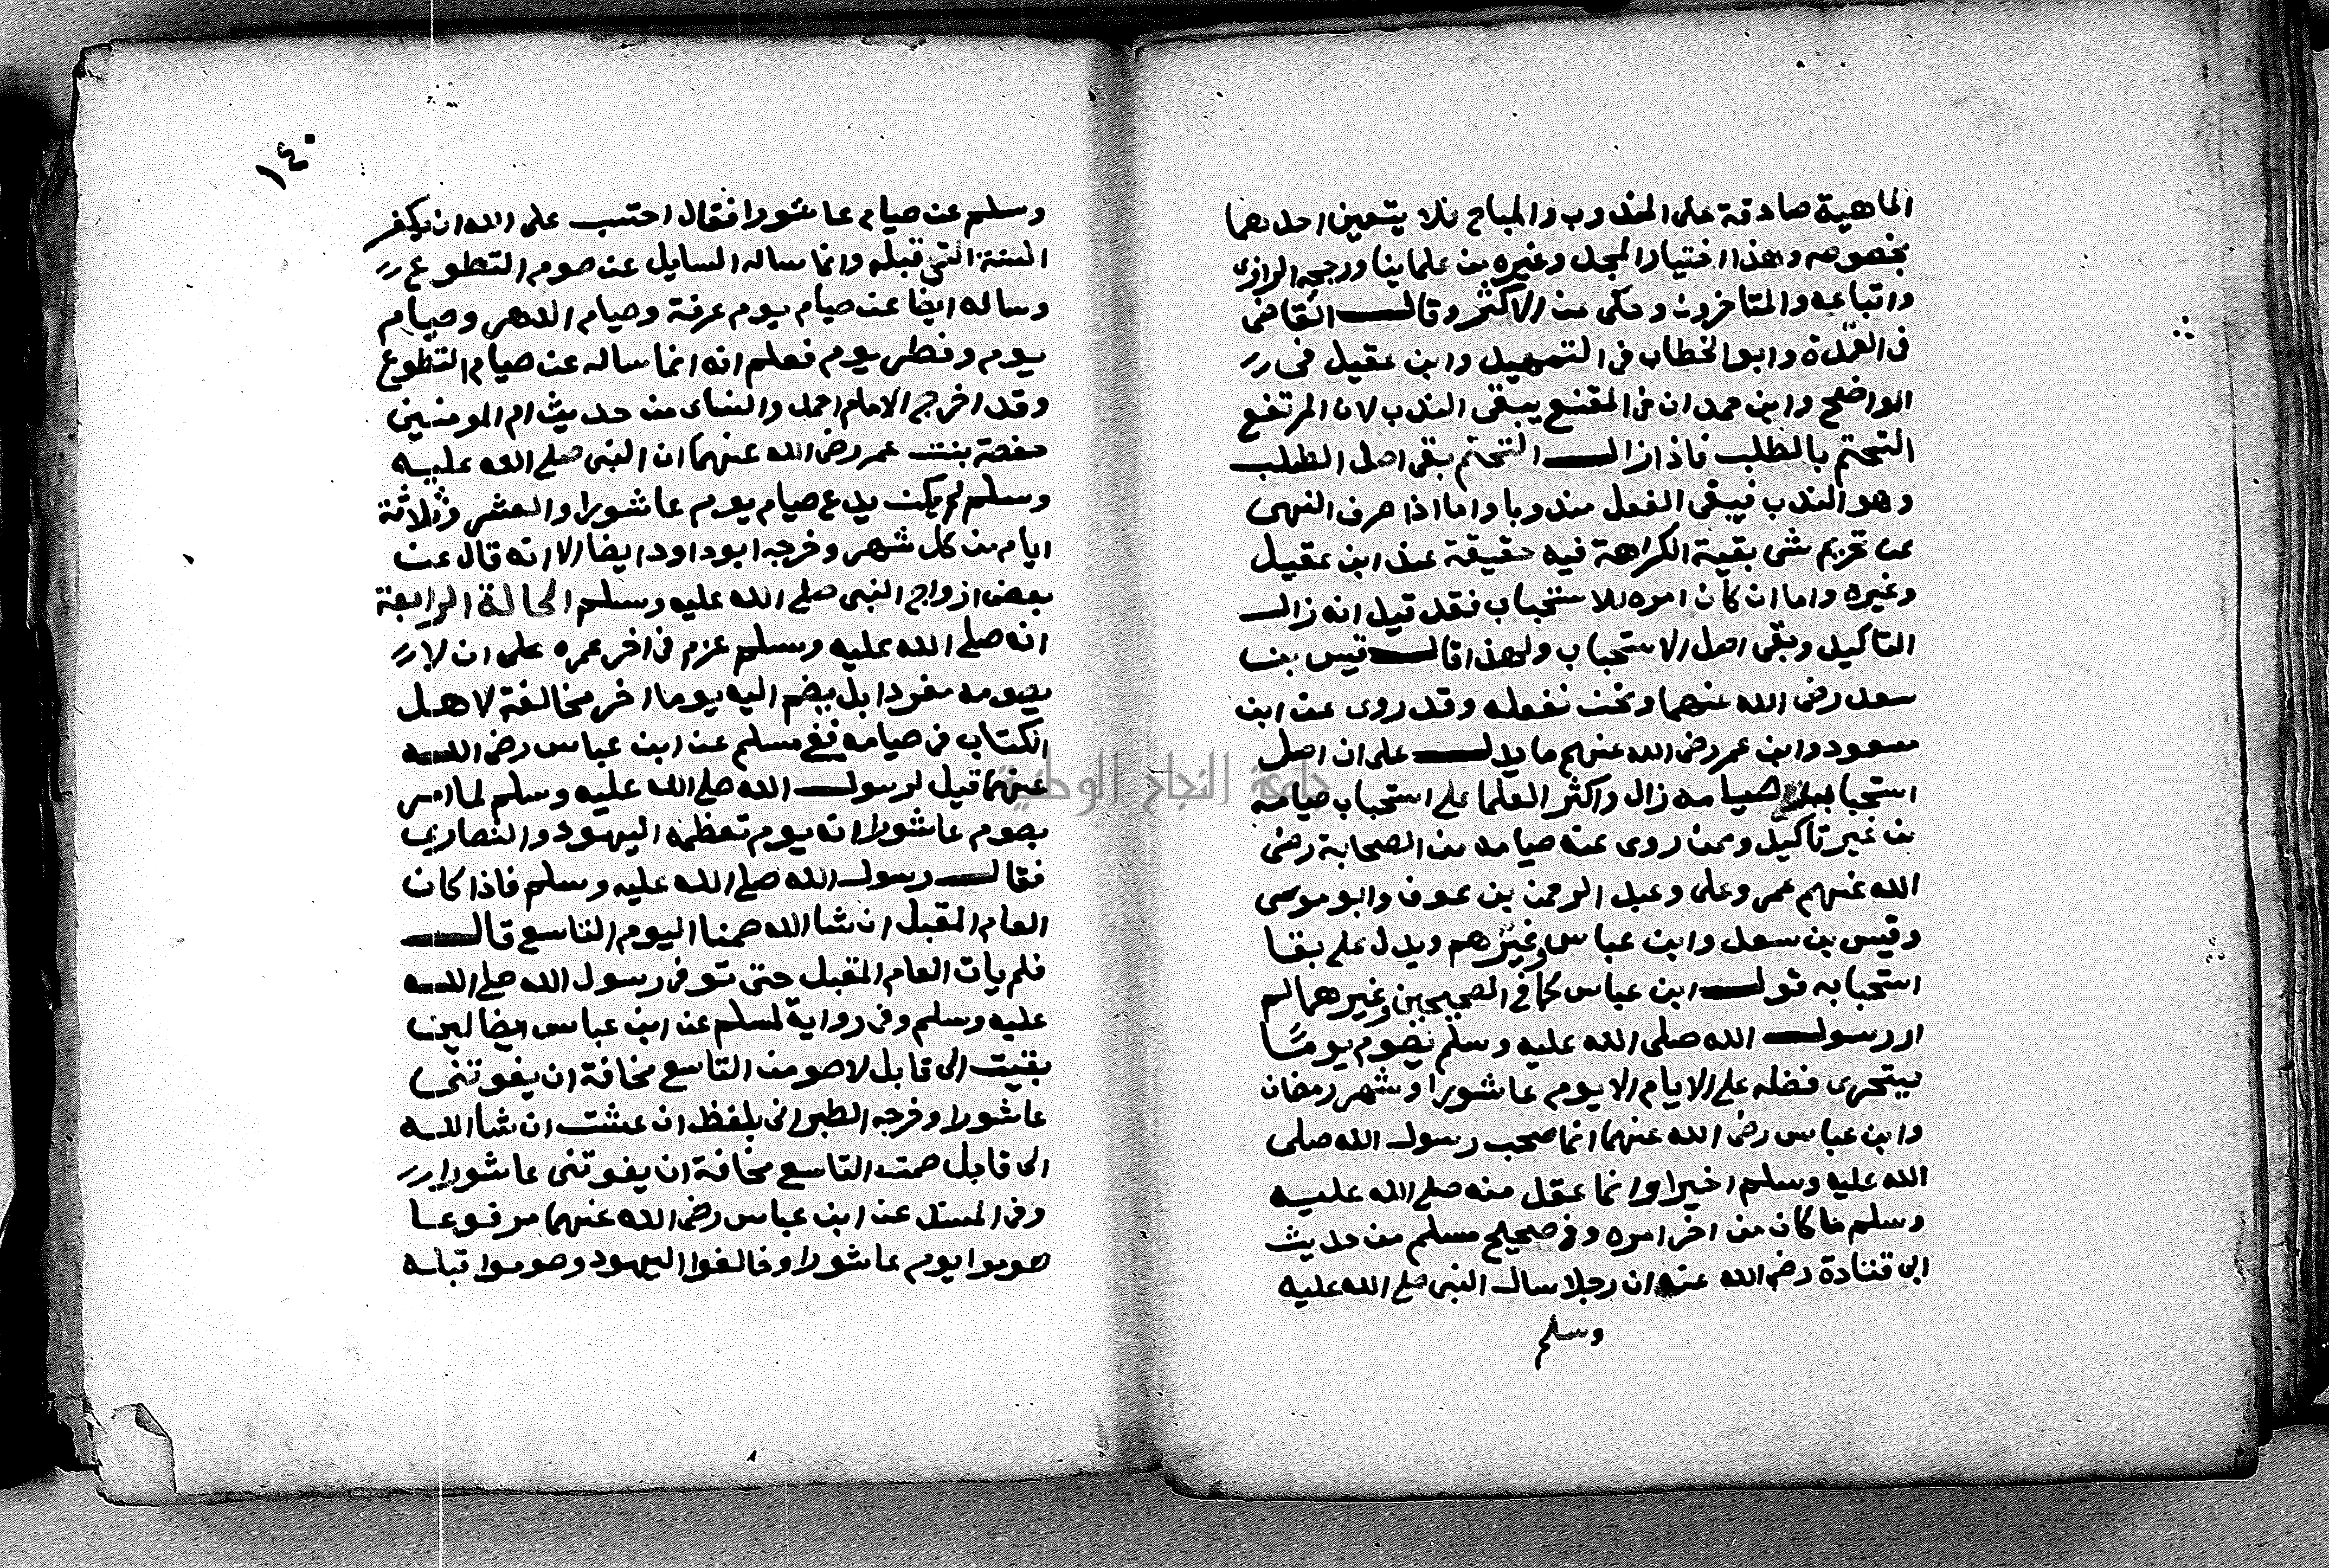 الماهية صادقة على المندوب والمباح فلا يتعين احدهما
بخصوصه وهذا اختيار المجد وغيره من علماينا ورجحه الرازى
واتباعه والمتاخرون وحكى عن الاكثر وقال القاضى
فى العدة وابو الخطاب فى التمهيد وابن عقيل فى
الواضح وابن حمدان فى المقنع يبقى الندب لان المرتفع
التحتم بالطلب فاذا زال التحتم بقى اصل الطلب
وهو الندب فيبقى الفعل مندوبا واما اذا صرف النهى
عن تحريم شى بقية الكراهة فيه حقيقة عند ابن عقيل
وغيره واما ان كان امره للاستحباب فقد قيل انه زال
التاكيد وبقى اصل الاستحباب ولهذا قال قيس بن
سعد رضى الله عنهما ونحن نفعله وقد روى عن ابن
مسعود وابن عمر رضى الله عنهم ما يدل على ان اصل
استحباب صيامه زال واكثر العلما على استحباب صيامه
من غير تاكيد وممن روى عنه صيامه من الصحابة رضى
الله عنهم عمر وعلى وعبد الرحمن بن عوف وابو موسى
وقيس بن سعد وابن عباس وغيرهم ويدل على بقا
استحبابه قول ابن عباس كما فى الصحيحين وغيرهما لم
ار رسول الله صلى الله عليه وسلم يصوم يومًا
يتحرى فضله على الايام الا يوم عاشورا وشهر رمضان
وابن عباس رضى الله عنهما انما صحب رسول الله صلى
الله عليه وسلم اخيرا وانما عقل منه صلى الله عليه
وسلم ما كان من اخر امره وفى صحيح مسلم من حديث
ابى قتادة رضى الله عنه ان رجلا سال النبى صلى الله عليه
وسلم
١٤٠
وسلم عن صيام عاشورا فقال احتسب على الله ان يكفر
السنة التى قبله وانما ساله السايل عن صوم التطوع
وساله ايضا عن صيام يوم عرفة وصيام الدهر وصيام
يوم وفطر يوم فعلم انه انما ساله عن صيام التطوع
وقد اخرج الامام احمد والنساى من حديث ام المومنين
حفصة بنت عمر رضى الله عنهما ان النبى صلى الله عليه
وسلم لم يكن يدع صيام يوم عاشورا والعشر وثلاثة
ايام من كل شهر وخرجه ابو داود ايضا الا انه قال عن
بعض ازواج النبى صلى الله عليه وسلم الحالة الرابعة
انه صلى الله عليه وسلم عزم فى اخر عمره على ان لا
يصومه مفردا بل يضم اليه يوما اخر مخالفة لاهل
الكتاب فى صيامه ففى مسلم عن ابن عباس رضى الله
عنهما قيل لرسول الله صلى الله عليه وسلم لما امر
بصوم عاشورا انه يوم تعظمه اليهود والنصارى
فقال رسول الله صلى الله عليه وسلم فاذا كان
العام المقبل ان شا الله صمنا اليوم التاسع قال
فلم يات العام المقبل حتى توفى رسول الله صلى الله
عليه وسلم وفى رواية لمسلم عن ابن عباس ايضا لين
بقيت الى قابل لاصومن التاسع مخافة ان يفوتنى
عاشورا وخرجه الطبرانى بلفظ ان عشت ان شا الله
الى قابل صمت التاسع مخافة ان يفوتنى عاشورا
وفى المسند عن ابن عباس رضى الله عنهما مرفوعا
صوموا يوم عاشورا وخالفوا اليهود وصوموا قبله
جامعة النجاح الوطنية